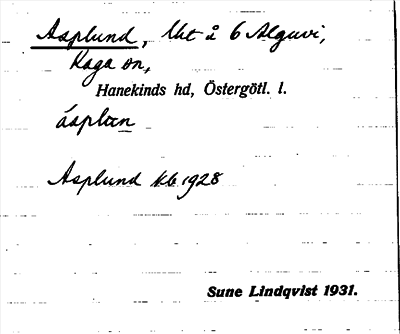 Asplund, Urt å 6 Alguvi,
Kaga sn,
Hanekinds hd, Östergötl. l.
Asplund kb 1928
Sune Lindqvist 1931.